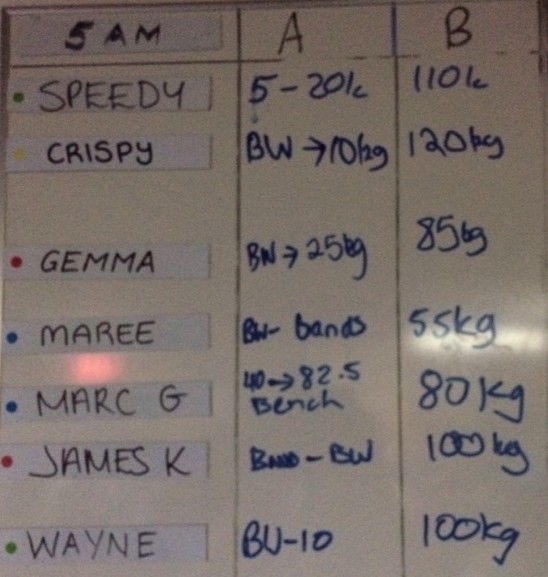 5 AM A B
SPEEDY 5-20k 110k
CRISPY BW →10kg 120kg
GEMMA BW → 25kg 85kg
MAREE BW- bands 55kg
MARC G 40→82.5 Bench 80kg
JAMES K Band-BW 100kg
WAYNE BW-10 100kg